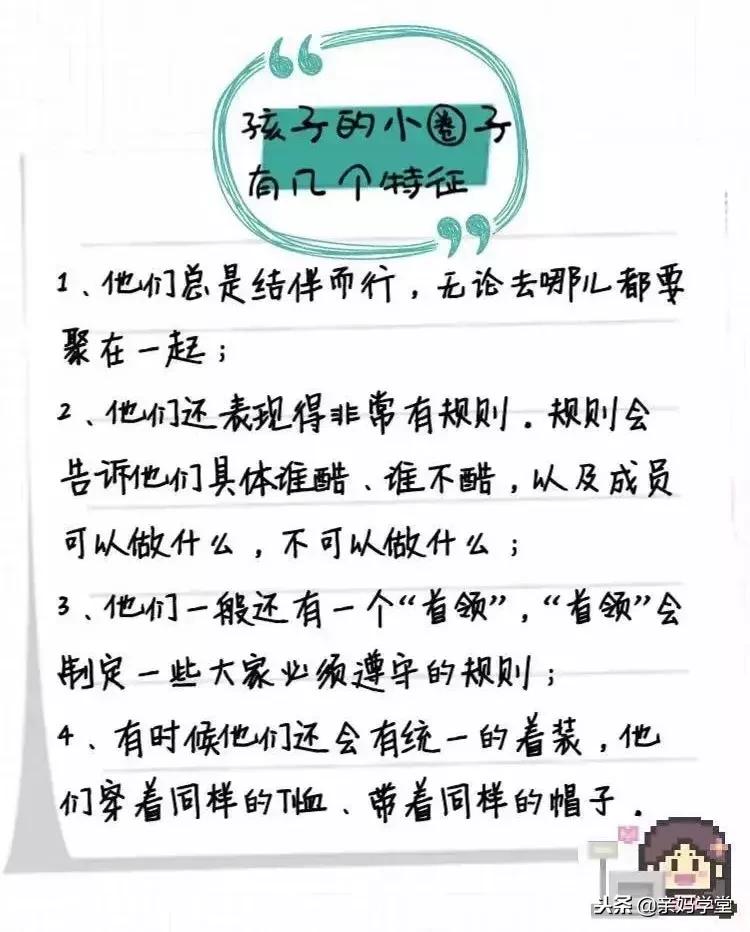 孩子的小圈子
有几个特征
1、他们总是结伴而行，无论去哪儿都要
聚在一起；
2、他们还表现得非常有规则。规则会
告诉他们具体谁酷、谁不酷，以及成员
可以做什么，不可以做什么；
3、他们一般还有一个“首领”，“首领”会
制定一些大家必须遵守的规则；
4、有时候他们还会有统一的着装，他
们穿着同样的T恤、带着同样的帽子。
头条@亲妈学堂